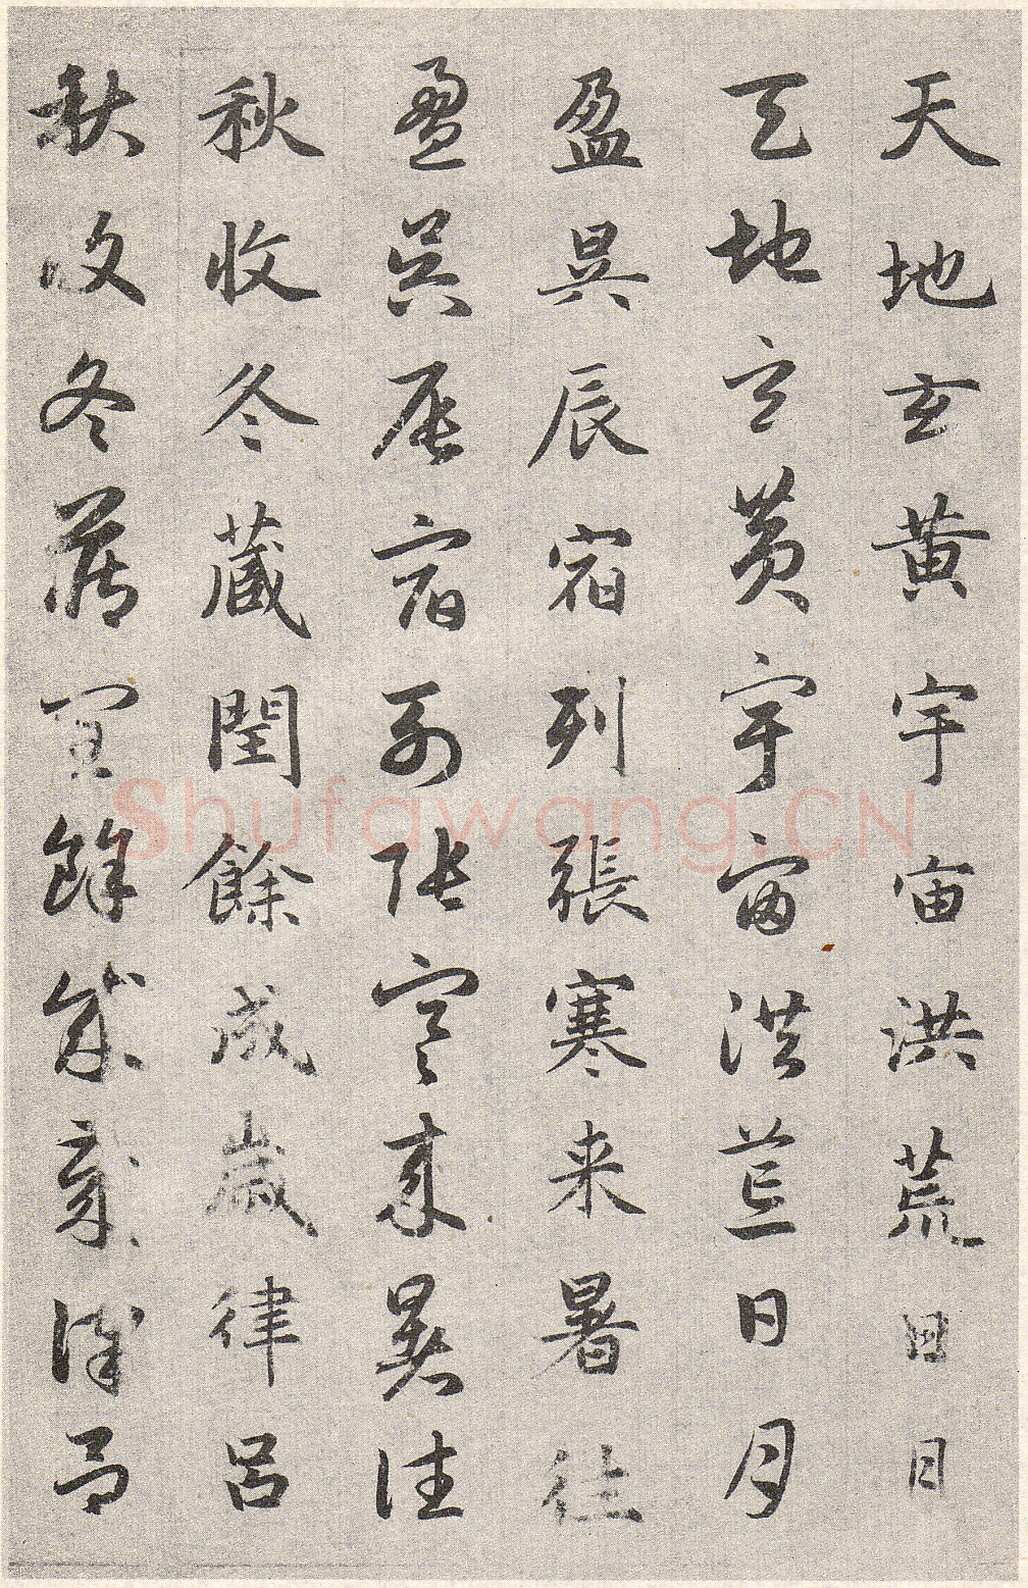 天地玄黄宇宙洪荒日月
天地玄黄宇宙洪荒日月
盈昃辰宿列張寒来暑往
盈昃辰宿列張寒来暑往
秋收冬蔵閏餘成歲律吕
秋收冬蔵閏餘成歲律吕
Shufawang.CN